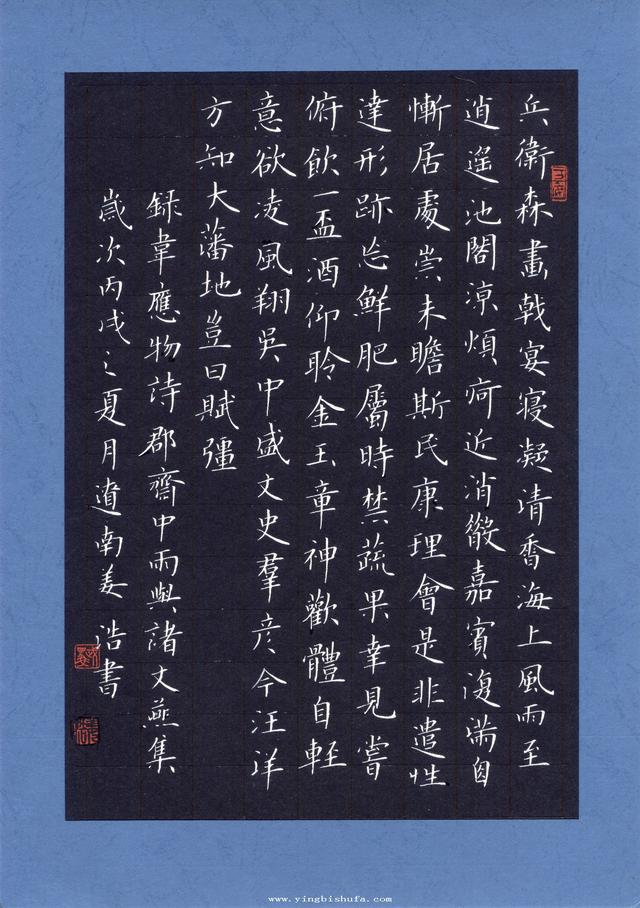 兵衛森畫戟宴寢凝清香海上風雨至
逍遥池閣涼煩疴近消散嘉賓復滿自
慚居處崇未瞻斯民康理會是非遣性
達形跡忘鮮肥屬時禁蔬果幸見嘗
俯飲一盃酒仰聆金玉章神歡體自輕
意欲凌風翔吳中盛文史羣彦今汪洋
方知大藩地豈曰賦彊
録韋應物詩郡齋中雨與諸文燕集
歲次丙戌之夏月遼南姜浩書
www.yingbishufa.com